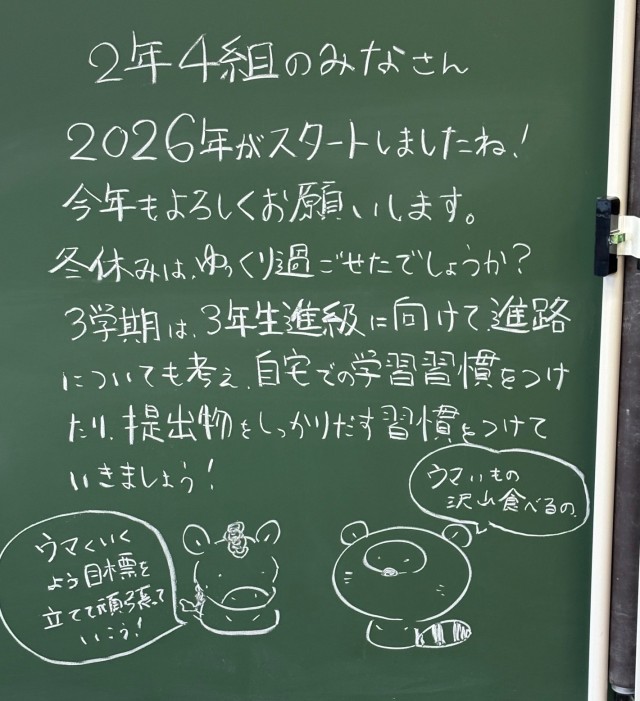 2年4組のみなさん
2026年がスタートしましたね!
今年もよろしくお願いします。
冬休みは、ゆっくり過ごせたでしょうか?
3学期は、3年生進級に向けて、進路
についても考え、自宅での学習習慣をつけ
たり、提出物をしっかりだす習慣をつけて
いきましょう!
ウマいもの
沢山食べるの
ウマくいく
よう目標を
立てて頑張って
いこう!